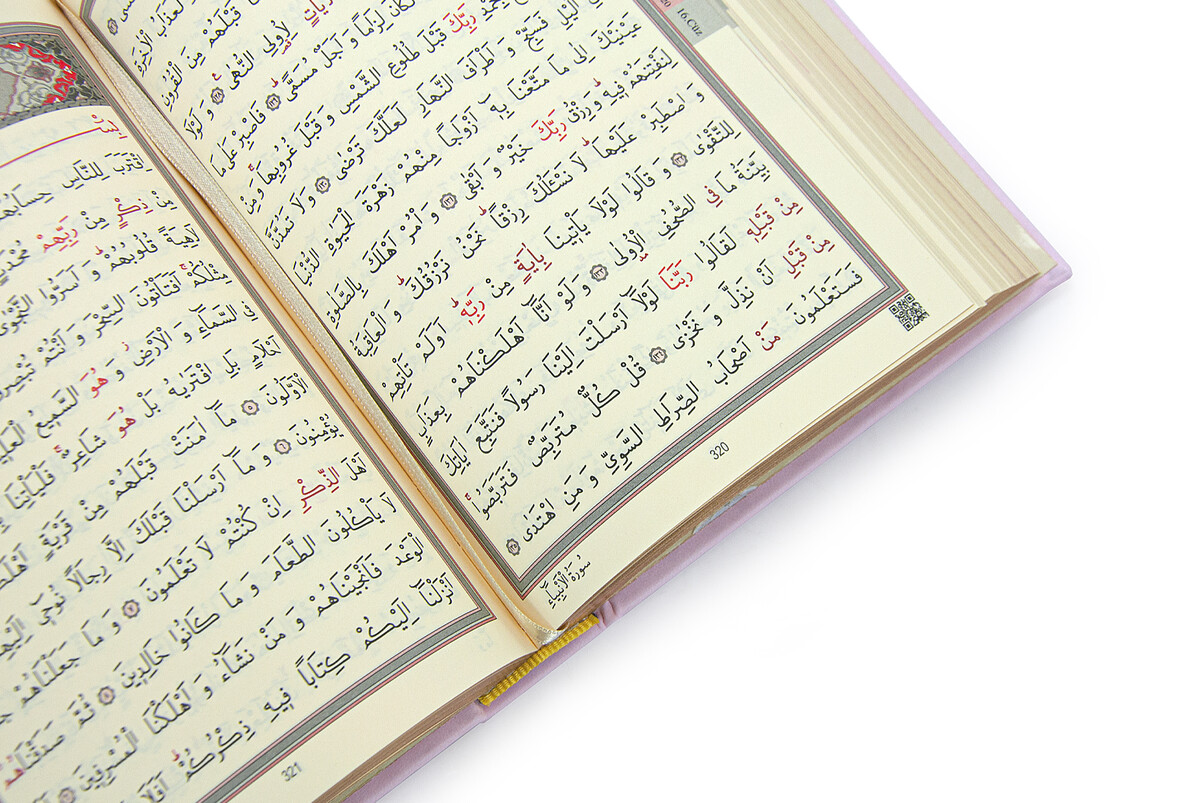 16.Cüz
لَعَذَابُ الْاٰخِرَةِ
قَبْلَهُمْ مِنَ الْقُرُونِ
لِاُولِي النُّهٰى ﴿١٢٨﴾ وَ لَوْلَا
لَكَانَ لِزَامًا وَ اَجَلٌ مُسَمًّى ﴿١٢٩﴾ فَاصْبِرْ عَلٰى مَا
رَبِّكَ قَبْلَ طُلُوعِ الشَّمْسِ وَ قَبْلَ غُرُوبِهَا وَ مِنْ
الَّيْلِ فَسَبِّحْ وَ اَطْرَافَ النَّهَارِ لَعَلَّكَ تَرْضٰى ﴿١٣٠﴾ وَ لَا تَمُدَّنَّ
عَيْنَيْكَ اِلٰى مَا مَتَّعْنَا بِهٖٓ اَزْوَاجًا مِنْهُمْ زَهْرَةَ الْحَيٰوةِ الدُّنْيَا
لِنَفْتِنَهُمْ فٖيهِ وَ رِزْقُ رَبِّكَ خَيْرٌ وَ اَبْقٰى ﴿١٣١﴾ وَ أْمُرْ اَهْلَكَ بِالصَّلٰوةِ
وَ اصْطَبِرْ عَلَيْهَا لَا نَسْـَٔلُكَ رِزْقًا نَحْنُ نَرْزُقُكَ وَ الْعَاقِبَةُ
لِلتَّقْوٰى ﴿١٣٢﴾ وَ قَالُوا لَوْلَا يَأْتٖينَا بِاٰيَةٍ مِنْ رَبِّهٖ اَوَلَمْ تَأْتِهِمْ
بَيِّنَةُ مَا فِي الصُّحُفِ الْاُولٰى ﴿١٣٣﴾ وَ لَوْ اَنَّٓا اَهْلَكْنَاهُمْ بِعَذَابٍ
مِنْ قَبْلِهٖ لَقَالُوا رَبَّنَا لَوْلَٓا اَرْسَلْتَ اِلَيْنَا رَسُولًا فَنَتَّبِعَ اٰيَاتِكَ
مِنْ قَبْلِ اَنْ نَذِلَّ وَ نَخْزٰى ﴿١٣٤﴾ قُلْ كُلٌّ مُتَرَبِّصٌ فَتَرَبَّصُوا
فَسَتَعْلَمُونَ مَنْ اَصْحَابُ الصِّرَاطِ السَّوِيِّ وَ مَنِ اهْتَدٰى ﴿١٣٥﴾
320
سُورَةُ الْاَنْبِيَاءِ
اِقْتَرَبَ لِلنَّاسِ حِسَابُهُمْ
مِنْ ذِكْرٍ مِنْ رَبِّهِمْ مُحْدَثٍ
لَاهِيَةً قُلُوبُهُمْ وَ اَسَرُّوا النَّجْوٰى
مِثْلُكُمْ اَفَتَأْتُونَ السِّحْرَ وَ اَنْتُمْ تُبْصِرُونَ
فِي السَّمَٓاءِ وَ الْاَرْضِ وَ هُوَ السَّمٖيعُ الْعَلٖيمُ
اَحْلَامٍ بَلِ افْتَرٰيهُ بَلْ هُوَ شَاعِرٌ فَلْيَأْتِنَا
الْاَوَّلُونَ ﴿٥﴾ مَٓا اٰمَنَتْ قَبْلَهُمْ مِنْ قَرْيَةٍ
يُؤْمِنُونَ ﴿٦﴾ وَ مَٓا اَرْسَلْنَا قَبْلَكَ اِلَّا رِجَالًا نُوحٖٓي اِلَيْهِمْ
اَهْلَ الذِّكْرِ اِنْ كُنْتُمْ لَا تَعْلَمُونَ ﴿٧﴾ وَ مَا جَعَلْنَاهُمْ
لَا يَأْكُلُونَ الطَّعَامَ وَ مَا كَانُوا خَالِدٖينَ ﴿٨﴾ ثُمَّ صَدَقْنَاهُمُ
الْوَعْدَ فَاَنْجَيْنَاهُمْ وَ مَنْ نَشَٓاءُ وَ اَهْلَكْنَا الْمُسْرِفٖينَ ﴿٩﴾
اَنْزَلْنَٓا اِلَيْكُمْ كِتَابًا فٖيهِ ذِكْرُكُمْ اَفَلَا
321